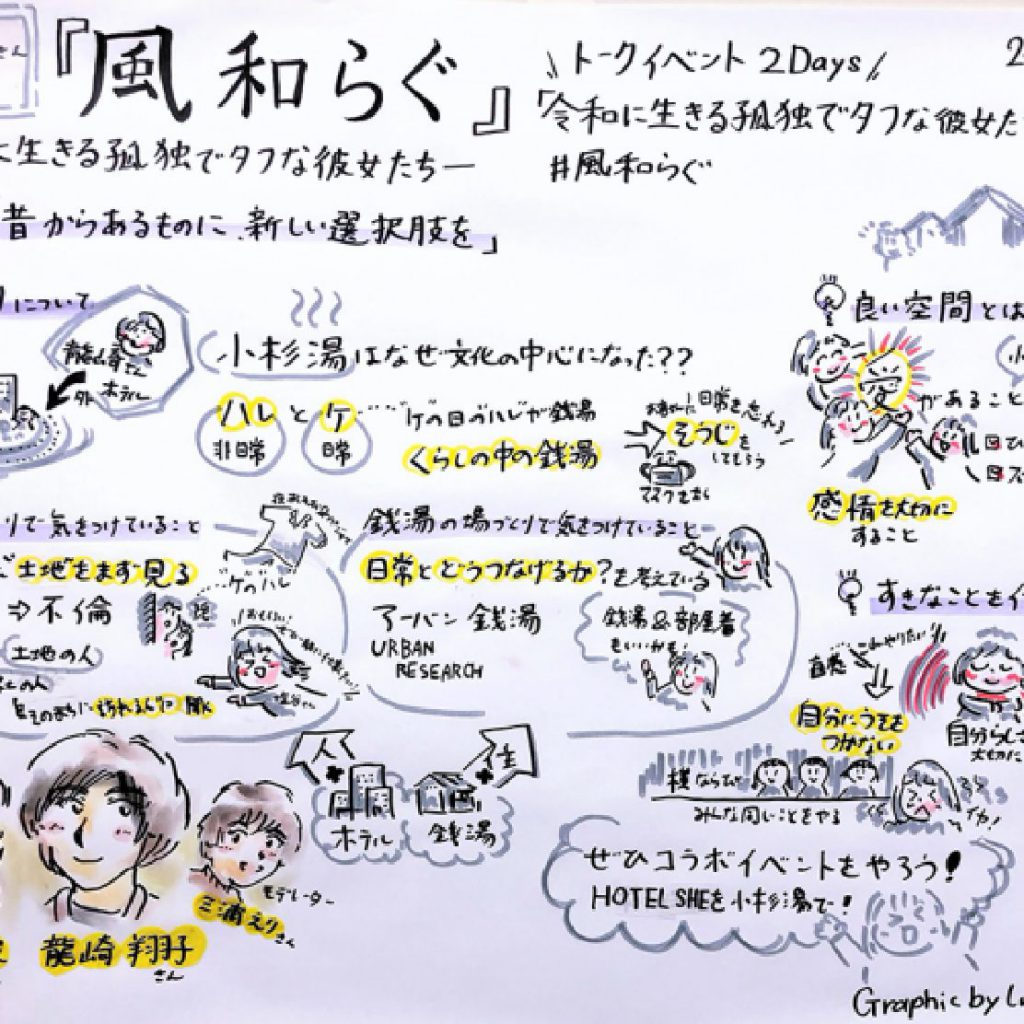 さん
『風和らぐ』
に生きる孤独でタフな彼女たちー
昔からあるものに、新しい選択肢を」
\\トークイベント 2Days//
「令和に生きる孤独でタフな彼女た
#風和らぐ
2
について
龍崎さん
ホテル
外
小杉湯はなぜ文化の中心になった??
ハレとケ
非日常
日常
ケの日のハレが銭湯
くらしの中の銭湯
日常を忘れる
そうじを
してもらう
良い空間とは
愛があること
感情を大切に
すること
りで気をつけていること
土地をまず見る
⇒不倫
土地の人
ケのハレ
銭湯の場づくりで気をつけていること
日常とどうつなげるか?を考えている
アーバン銭湯
URBAN
RESEARCH
銭湯&部屋着
もいいかも!
すきなことをイ
直感
自分にうそを
つかない
自分らしさ
大切に
横ならび
みんな同じことをやる
人
住
ホテル
銭湯
龍崎翔子
さん
モデレーター
三浦えりさん
ぜひコラボイベントをやろう!
HOTEL SHEを小杉湯で!
Graphic by